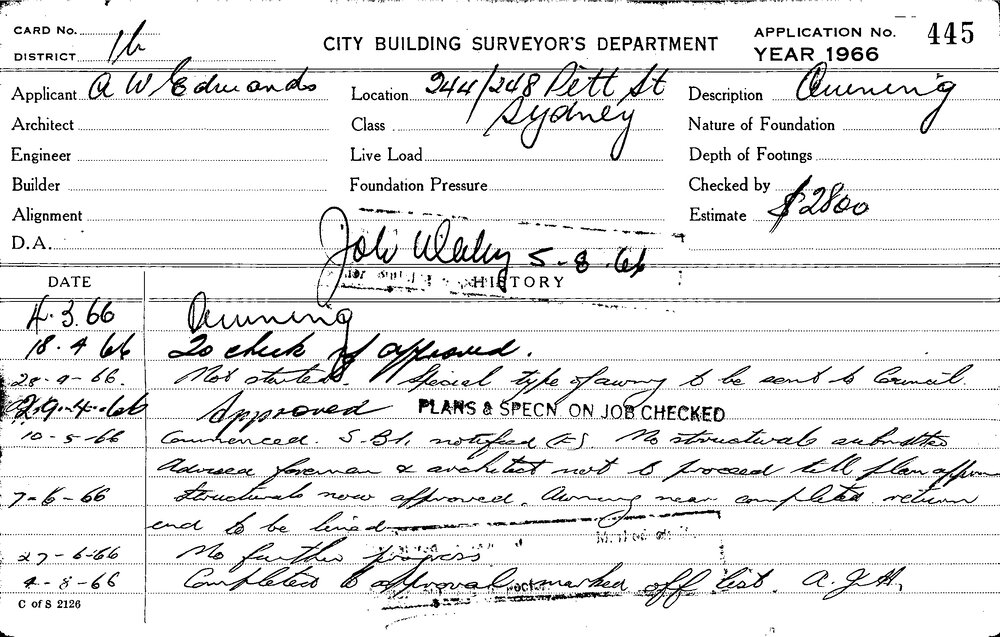 CARD No.
DISTRICT 1b
CITY BUILDING SURVEYOR'S DEPARTMENT
APPLICATION No. 445
YEAR 1966
Applicant A W Edwards
Location 244/248 Pitt St
Sydney
Description Awning
Architect
Class
Nature of Foundation
Engineer
Live Load
Depth of Footings
Builder
Foundation Pressure
Checked by
Alignment
Estimate $2800
D.A.
5-8-66
DATE
HISTORY
4.3.66 Awning
18.4.66 To check if approved.
Not started. Special type of awning to be sent to Council.
29.4.66 Approved PLANS & SPECN ON JOB CHECKED
10-5-66 Commenced. notified No structurals submitted
Advised foreman & architect not to proceed till plan
7-6-66 Structurals now approved. Awning near completed return
end to be lined
27-6-66 No further progress
4-8-66 Completed to approval marked off list. A.J.H.
C of S 2126